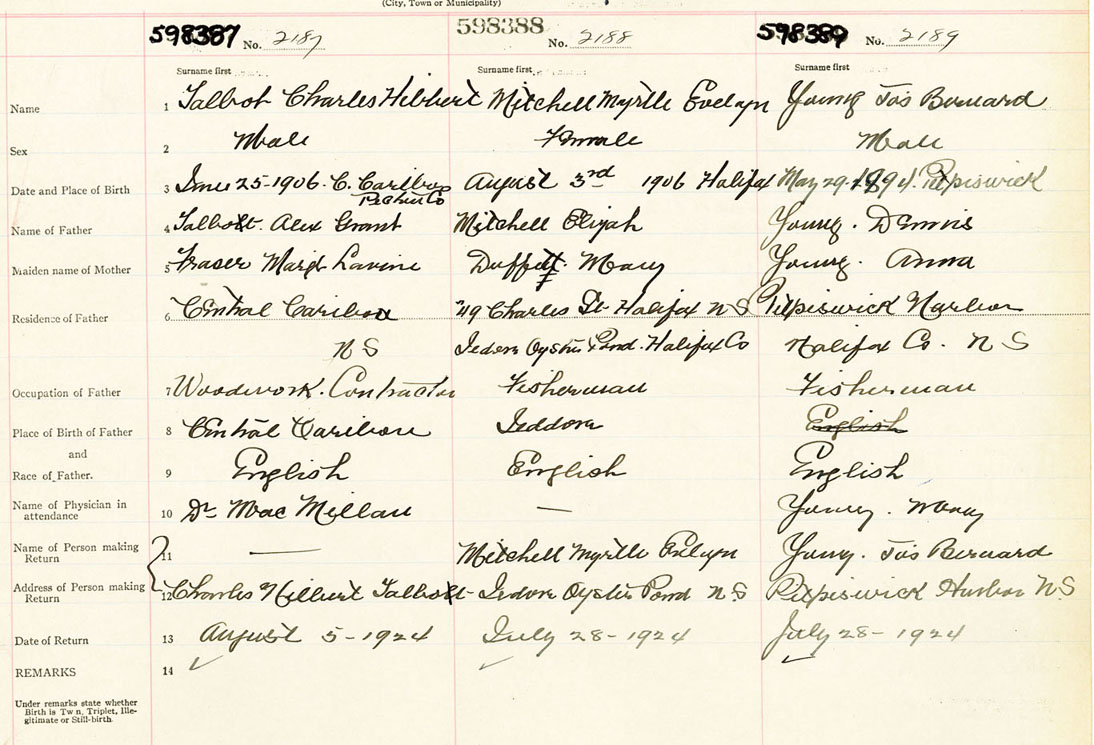 (City, Town or Municipality)
598387 No. 2187 598388 No. 2188 598389 No. 2189
Surname first Surname first Surname first
Name 1 Talbot Charles Hibbert Mitchell Myrtle Evelyn Young Jas Bernard
Sex 2 Male Female Male
Date and Place of Birth 3 June 25-1906. C. Caribou August 3rd 1906 Halifax May 29-1894. Petpiswick
Pictou Co
Name of Father 4 Talbot. Alex Grant Mitchell Elijah Young. Dennis
Maiden name of Mother 5 Fraser Margt Lavine Duffett. Mary Young. Anna
Residence of Father 6 Central Caribou 49 Charles St Halifax N S Petpiswick Harbor
N S Jedore Oyster Pond. Halifax Co Halifax Co. N S
Occupation of Father 7 Woodwork. Contractor Fisherman Fisherman
Place of Birth of Father 8 Central Caribou Jeddore English
and
Race of Father. 9 English English English
Name of Physician in
attendance 10 Dr Mac Millan — Young. Mary
Name of Person making
Return 11 — Mitchell Myrtle Evelyn Young. Jas Bernard
Address of Person making
Return 12 Charles Hilbert Talbot - Jedore Oyster Pond N.S Petpiswick Harbor N S
Date of Return 13 August 5-1924 July 28-1924 July 28-1924
REMARKS 14
Under remarks state whether
Birth is Twin, Triplet, Ille-
gitimate or Still-birth.